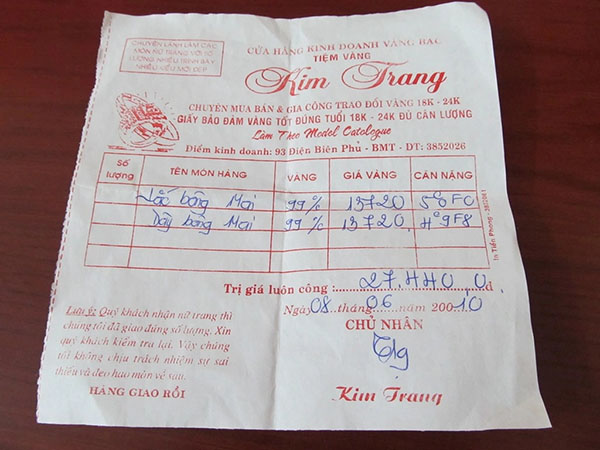 CHUYÊN LÃNH LÀM CÁC
MÓN NỮ TRANG VỚI SỐ
LƯỢNG NHIỀU TRÌNH BÀY
NHIỀU KIỂU MỚI ĐẸP
CỬA HÀNG KINH DOANH VÀNG BẠC
TIỆM VÀNG
Kim Trang
CHUYÊN MUA BÁN & GIA CÔNG TRAO ĐỔI VÀNG 18K - 24K
GIẤY BẢO ĐẢM VÀNG TỐT ĐÚNG TUỔI 18K - 24K ĐỦ CÂN LƯỢNG
Làm Theo Model Catologue
Điểm kinh doanh: 93 Điện Biên Phủ - BMT - ĐT: 3852026
Số lượng TÊN MÓN HÀNG VÀNG GIÁ VÀNG CÂN NẶNG
Lắc bông Mai 99% 13720 5°0F0
Dây bông Mai 99% 13720 4°9F8
In Tiến Phong
Trị giá luôn công : 27.440.0đ
Ngày 08 tháng 06 năm 200 10
CHỦ NHÂN
Kim Trang
Lưu ý: Quý khách nhận nữ trang thì
chúng tôi đã giao đúng số lượng. Xin
quý khách kiểm tra lại. Vậy chúng
tôi không chịu trách nhiệm sự sai
thiếu và đeo hao mòn về sau.
HÀNG GIAO RỒI